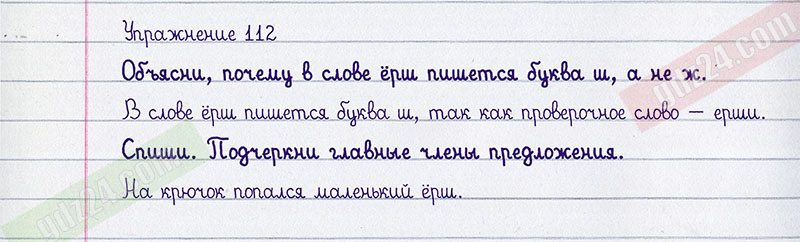 Упражнение 112
Объясни, почему в слове ёрш пишется буква ш, а не ж.
В слове ёрш пишется буква ш, так как проверочное слово — ерши.
Спиши. Подчеркни главные члены предложения.
На крючок попался маленький ёрш.
gdz24.com
gdz24.com